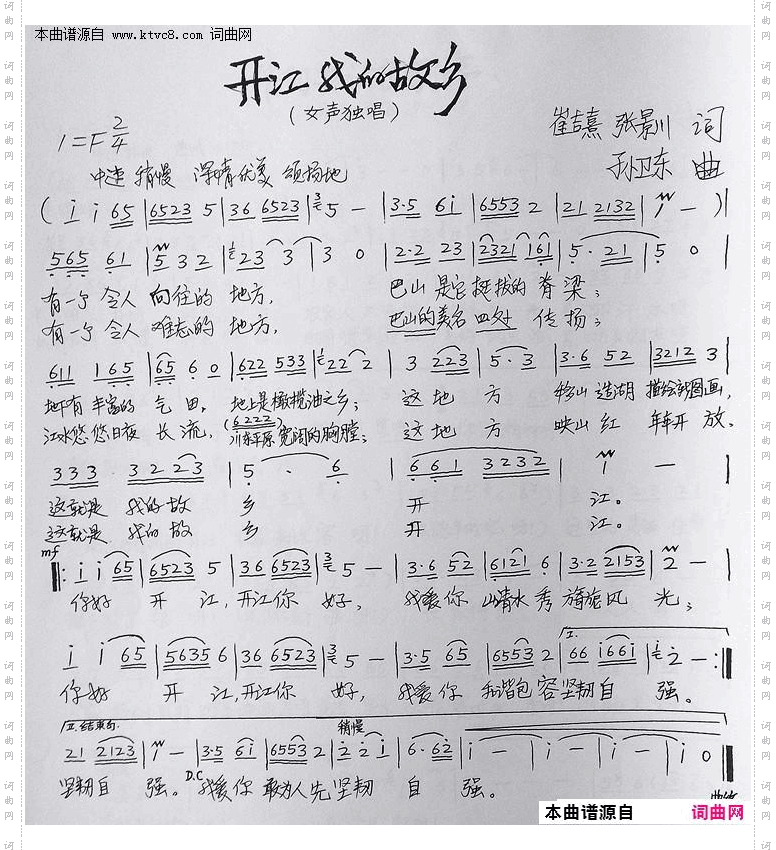 本曲谱源自 www.ktvc8.com 词曲网
开江我的故乡
(女声独唱)
崔吉熹 张景川 词
孙卫东 曲
1=F 2/4
中速 稍慢 深情优美 颂扬地
(i i 65 | 6523 5 | 36 6523 | 5 - | 3·5 6i | 6553 2 | 21 2132 | 1 - )|
565 61 | 5 32 | 23 3 | 3 0 | 2·2 23 | 2321 161 | 5·21 | 5 0 |
有一个 令人 向往的 地方, 巴山 是它 挺拔的 脊梁;
有一个 令人 难忘的 地方, 巴山的美名 四处 传扬;
611 165 | 65 6 0 | 622 533 | 22 2 | 3 223 | 5·3 | 3·6 52 | 3212 3 |
地下有 丰富的 气田, 地上是橄榄油之乡; 这地方 移山造湖 描绘新图画,
(6222)
江水悠悠日夜 长流, 川东平原 宽阔的胸膛; 这地方 映山红 年年开放。
333 3223 | 5 · 6 | 661 3232 | 1 - |
这就是 我的故 乡 开 江。
这就是 我的故 乡 开 江。
mf
|: i i 65 | 6523 5 | 36 6523 | 5 - | 3·6 52 | 6121 6 | 3·2 2153 | 2 - |
你好 开 江, 开江你 好, 我爱你 山清水秀旖旎风 光;
I.
i i 65 | 5635 6 | 36 6523 | 5 - | 3·5 65 | 6553 2 | 66 i66i | 2 - :|
你好 开 江, 开江你 好, 我爱你 和谐包容坚韧自 强。
II. 结束句 稍慢
21 2123 | i - | 3·5 6i | 6553 2 | 2 2 i | 6·62 | i - | i - | i - | i 0 |
坚韧自 强。 D.C 我爱你 敢为人先坚韧 自 强。
本曲谱源自 词曲网
词曲网